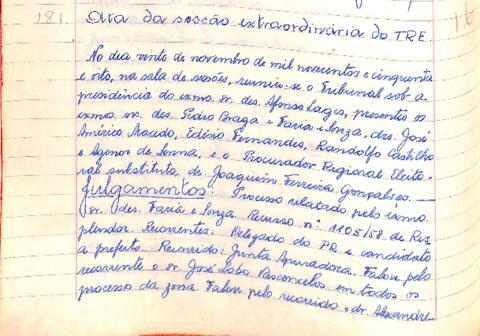 181. Ata da sessão extraordinária do TRE.
No dia vinte de novembro de mil novecentos e cinquenta
e oito, na sala de sessões, reuniu-se o Tribunal sob a
presidência do exmo. sr. des. Afonso Lages, presentes os
exmos. srs. des. Pedro Braga e Faria e Souza, drs. José
Américo Macedo, Edísio Fernandes, Randolfo Castilho
e Agenor de Senna, e o Procurador Regional Eleito-
ral substituto, dr. Joaquim Ferreira Gonçalves. —
Julgamentos: Processo relatado pelo exmo.
sr. des. Faria e Souza. Recurso nº 1105/58 de Res-
plendor. Recorrentes: Delegado do PR e candidato
a prefeito. Recorrido: Junta Apuradora. Falou pelo
recorrente o sr. José Lobo Vasconcelos em todos os
processo da zona. Falou pelo recorrido o dr. Alexandre